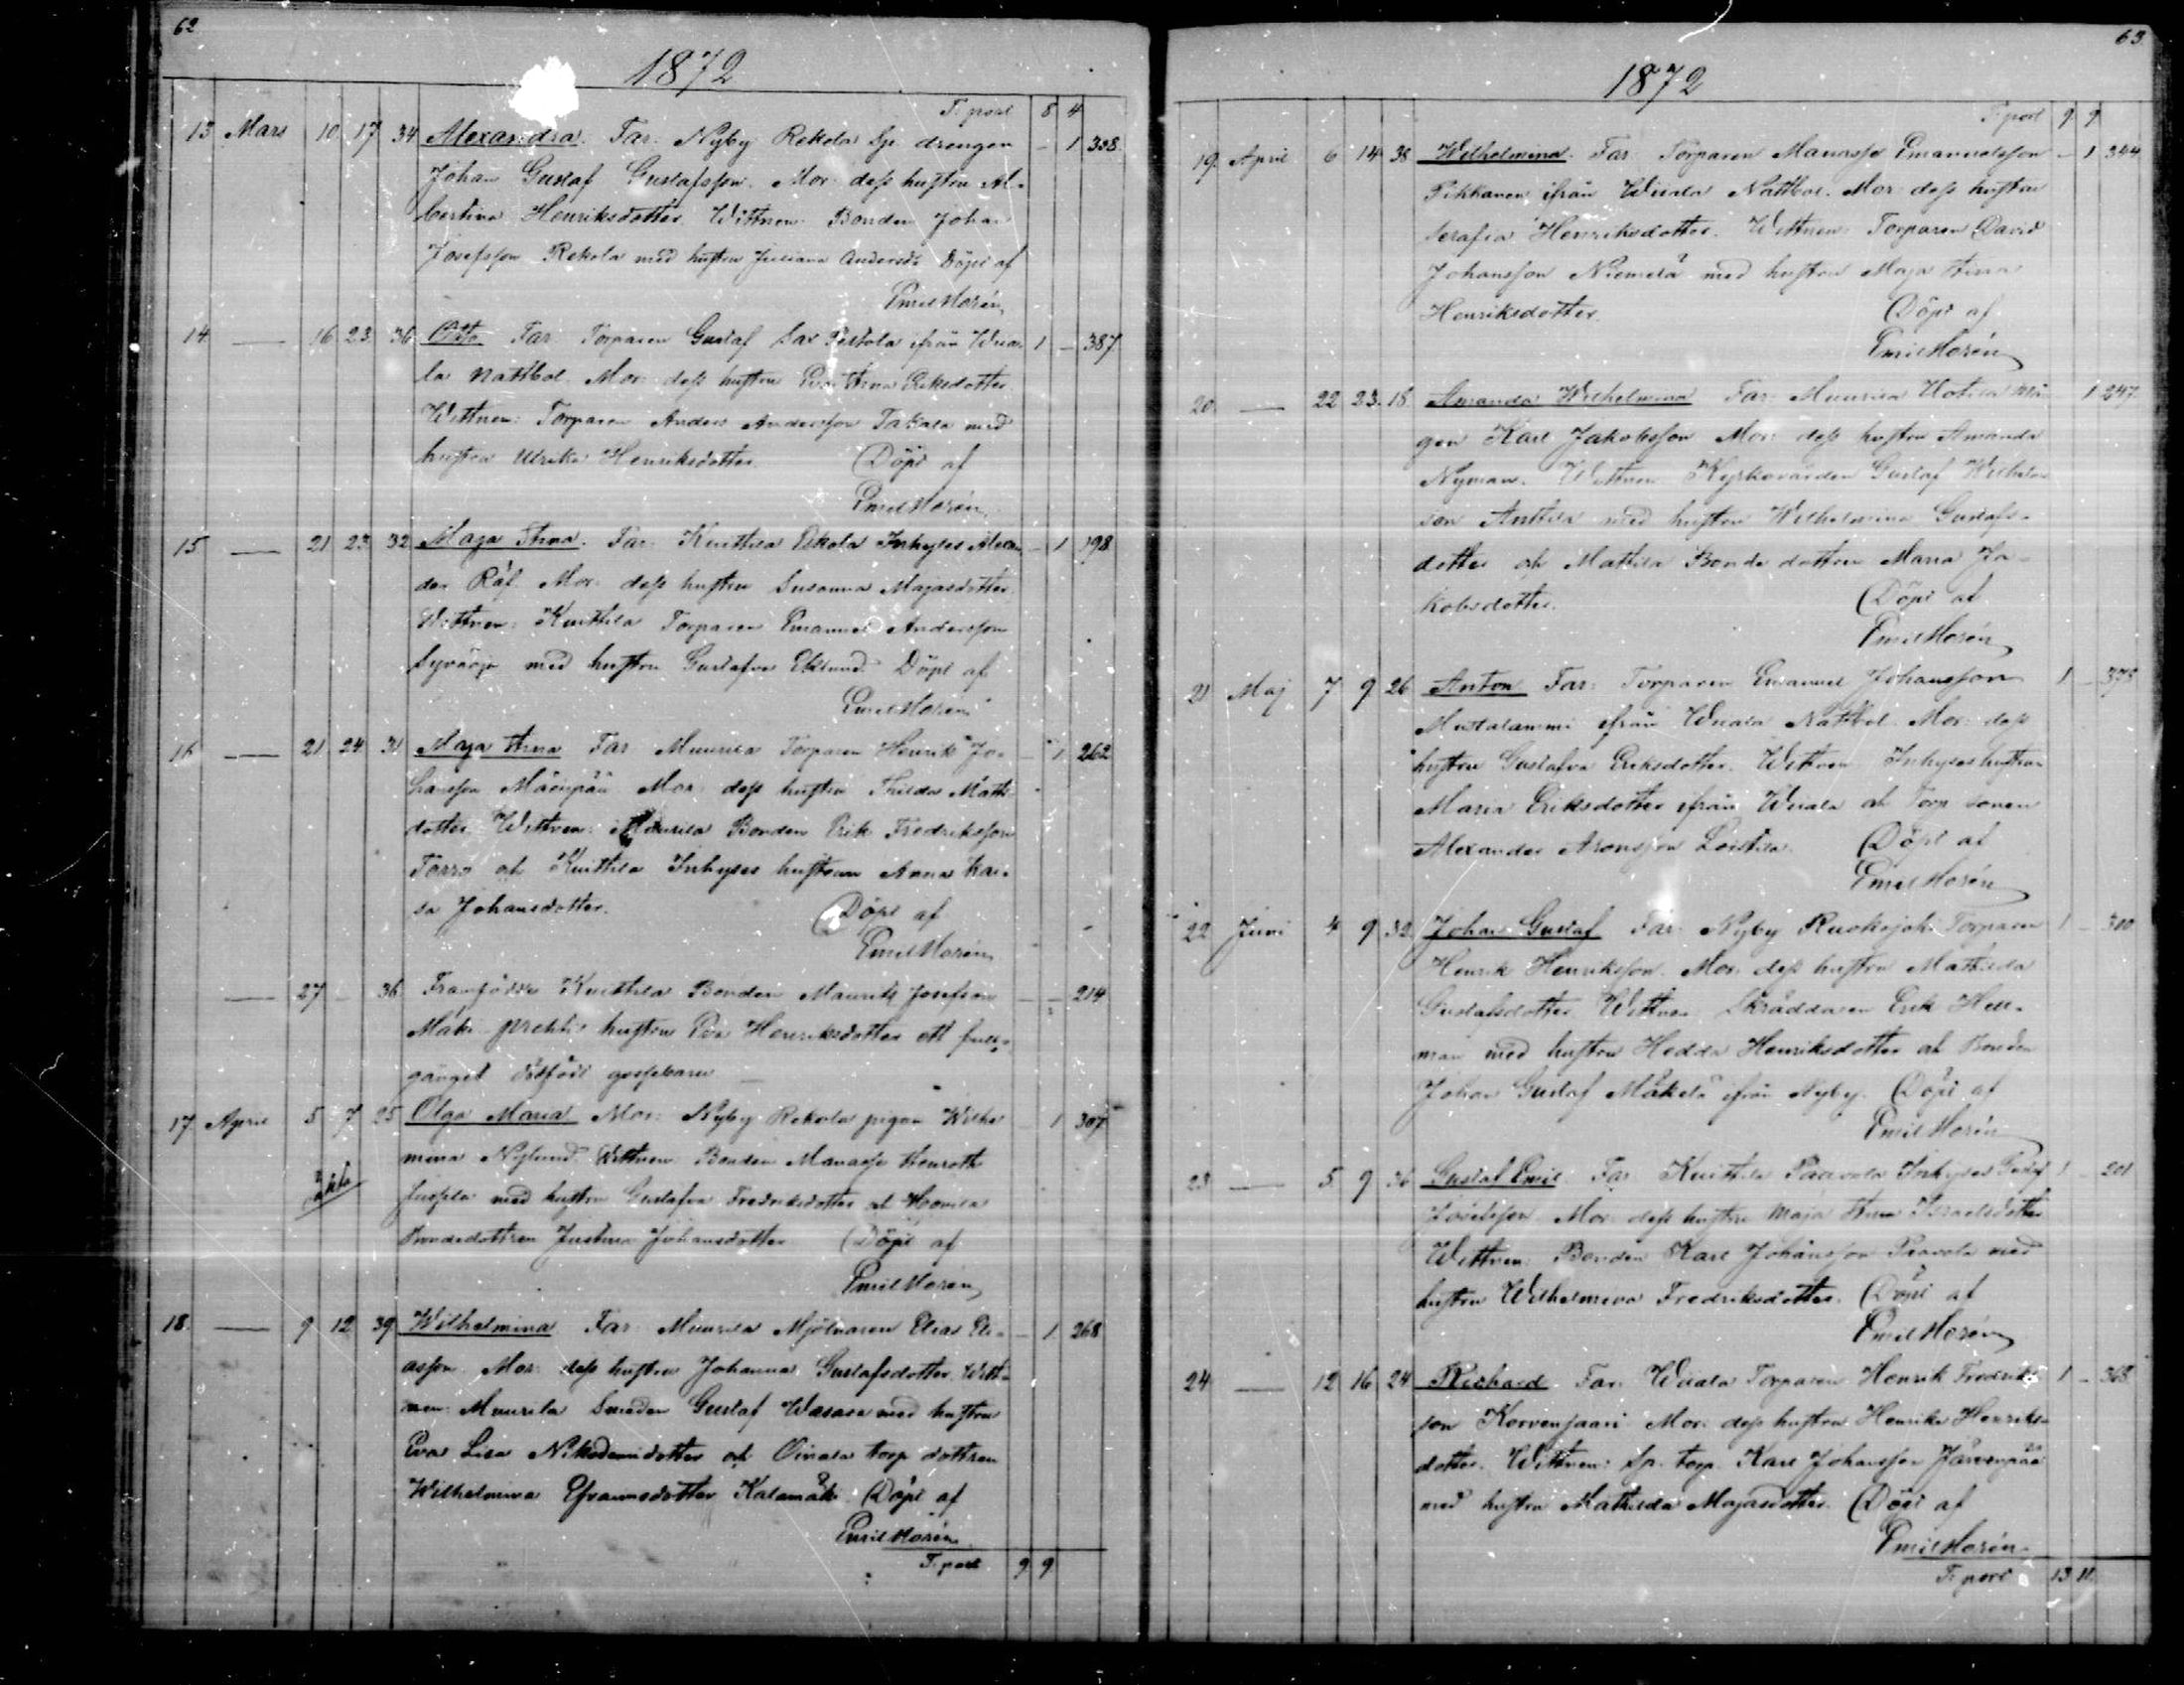 62
1872
Tr. port 8 4
13 Mars 10 17 34 Alexandra. Far: Nyby Rekola Sp. drengen – 1 308.
Johan Gustaf Gustafsson. Mor: dess hustru Al-
bertina Henriksdotter. Wittnen: Bonden Johan
Josefsson Rekola med hustru Juliana Andersdr Döpt af
Emil Horén
14. — 16 23 36 Otto Far Torparen Gustaf Sax Pertola ifrån Wiia- 1 – 387
la Nattbol. Mor: dess hustru Eva Stina Eriksdotter
Wittnen: Torparen Anders Andersson Takala med
hustru Ulrika Henriksdotter. Döpt af
Emil Horén
15 — 21 23 32 Maja Stina. Far: Kuittila Eskola Inhyses Alexan- – 1 198
der Räf. Mor: dess hustru Susanna Majasdotter.
Wittnen: Kuittila Torparen Emanuel Andersson
Syväoja med hustru Gustafva Eklund. Döpt af
Emil Horén
16 — 21 24 31 Maja Stina Far Muurila Torparen Henrik Jo- – 1 262
hansson Mäenpää Mor: dess hustru Thilda Matts-
dotter Wittnen: Muurila Bonden Erik Fredriksson
Tarro och Kuittila Inhyses hustrun Anna Kai-
sa Johansdotter. Döpt af
Emil Horén
— 27 – 36 Framfödde Kuittila Bonden Maurits Josefsson – – 214
Maki hustru Eva Henriksdotter ett full-
gånget dödfödt gossebarn —
17 April 5 7 25 Olga Maria Mor: Nyby Rekola pigan Wilhel – 1 307
mina Nylund. Wittnen Bonden Manasse Henroth
Jussila med hustru Gustafva Fredriksdotter och
oäkta
Bondedottren Justina Johansdotter Döpt af
Emil Horén
18. — 9 12 39 Wilhelmina Far: Muurila Mjölnaren Elias Eli- – 1 268
asson Mor: dess hustru Johanna Gustafsdotter. Witt-
nen: Muurila Smeden Gustaf Wasara med hustru
Eva Lisa Nikodemidotter och Oinala torp dottren
Wilhelmina Efraimsdotter Kalamäki. Döpt af
Emil Horén
Tr. port 9 9
63
1872
Tr. port 9 9
19 April 6 14 38 Wilhelmina. Far Torparen Manasse Emanuelsson – 1 344
Pikkanen ifrån Wiiala Nattbol. Mor dess hustru
Serafia Henriksdotter. Wittnen: Torparen David
Johansson Niemelä med hustru Maja Stina
Henriksdotter. Döpt af
Emil Horén
20. — 22 23. 18 Amanda Wilhelmina Far: Muurila Uotila Må- 1 247
gen Karl Jakobsson Mor: dess hustru Amanda
Nyman. Wittnen Kyrkovärden Gustaf Wilhelms
son Anttila med hustru Wilhelmina Gustafs-
dotter och Mattila Bonde dottren Maria Ja-
kobsdotter. Döpt af
Emil Horén
21 Maj 7 9 26 Anton Far: Torparen Emanuel Johansson 1 – 378
Mustalammi ifrån Wiiala Nattbol. Mor: dess
hustru Gustafva Eriksdotter. Wittnen Inhyses hustrun
Maria Eriksdotter ifrån Wiiala och Torp sonen
Alexander Aronsson Loistila. Döpt af
Emil Horén
22 Juni 4 9 32 Johan Gustaf Far: Nyby Ruokojoki Torparen 1 – 300
Henrik Henriksson. Mor: dess hustru Mathilda
Gustafsdotter Wittnen Skräddaren Erik Hell-
man med hustru Hedda Henriksdotter och Bonden
Johan Gustaf Mäkelä ifrån Nyby. Döpt af
Emil Horén
23 — 5 9 36 Gustaf Emil Far Kuittila Paavola Inhyses Gustaf 1 – 201
Josefsson Mor: dess hustru Maja Stina Israelsdotter
Wittnen: Bonden Karl Johansson Paavola med
hustru Wilhelmina Fredriksdotter. Döpt af
Emil Horén
24 — 12 16 24 Richard Far: Wiiala Torparen Henrik Fredriks- 1 – 368
son Korvensaari Mor: dess hustru Henrika Henriks-
dotter. Wittnen: Sp. torp. Karl Johansson Järvenpää
med hustru Mathilda Majasdotter. Döpt af
Emil Horén
Tr. port 13 11.